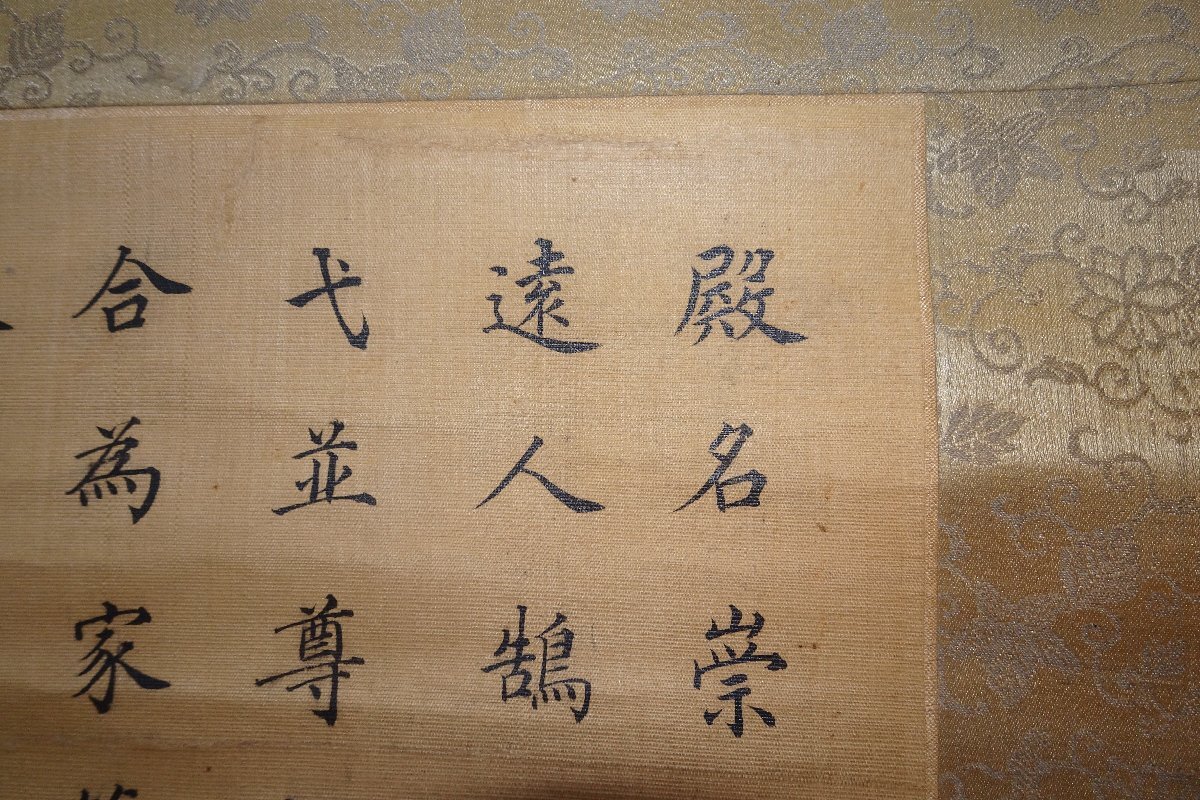 殿名崇
遠人鵠
弋並尊
合為家